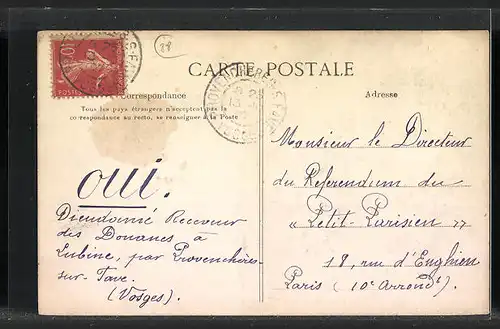 10
88
CARTE POSTALE
Correspondance
Adresse
Tous les pays étrangers n'acceptent pas la
correspondance au recto, se renseigner à la Poste
oui.
Dieudonné Receveur
des Douanes à
Lubine, par Provenchères-
sur-Fave.
(Vosges).
Monsieur le Directeur
du Referendum du
« Petit-Parisien »
18, rue d'Enghien
Paris (10e Arrondt.)